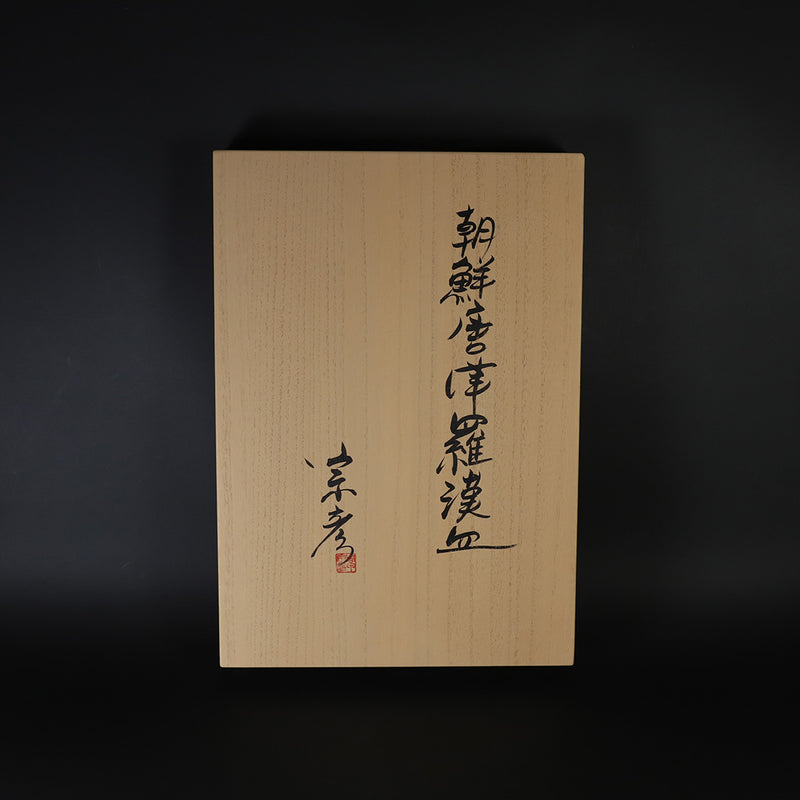 朝鮮唐津羅漢皿
宗彦